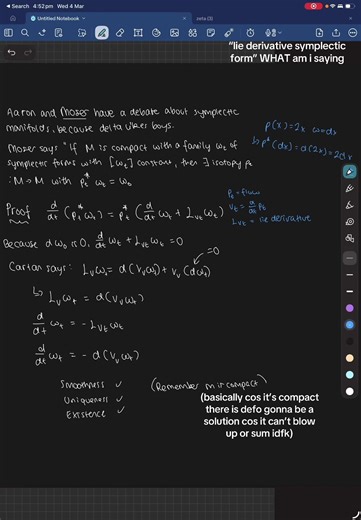 Search 4:52pm Wed 4 Mar
Untitled Notebook
zeta (3)
"lie derivative symplectic
form" WHAT am i saying
Aaron and Moser have a debate about symplectic
manifolds, because delta uker boys.
Moser says "If M is compact with a family ωt of
symplectic forms with [ωt] constant, then ∃ isotopy ρt
: M→M with ρt* ωt = ω0
ρ(x)=2x ω=dx
↳ ρ*(dx) = d(2x) = 2dx
Proof d/dt (ρt* ωt) = ρt* (d/dt ωt + Lvt ωt)
ρt = flow
Vt = d/dt ρt
Lvt = lie derivative
Because dω is 0, d/dt ωt + Lvt ωt = 0
=0
Cartan says: Lvωt = d(Vvωt) + Vv(dωt)
↳ Lvωt = d(Vvωt)
d/dt ωt = - Lvt ωt
d/dt ωt = - d(Vvωt)
Smoothness ✓ (Remember m is compact)
Uniqueness ✓
Existence ✓
(basically cos it's compact
there is defo gonna be a
solution cos it can't blow
up or sum idfk)